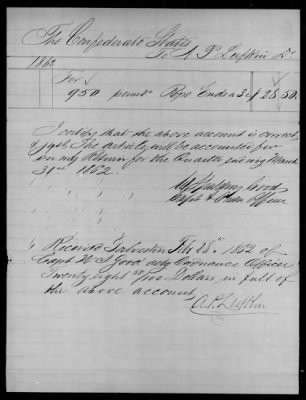 The Confederate States
To A P Lufkin Dr
1862
For
950 pounds Rope Ends a 3c $ 28.50
I certify that the above account is correct
& just. The articles will be accounted for
on my Return for the Quarter ending March
31st 1862.
Good
Capt & Officer
Received Galveston Feb 28th 1862 of
Capt W S Good actg Ordnance Officer
Twenty eight 50/100 Dollars in full of
the above account,
A. P. Lufkin